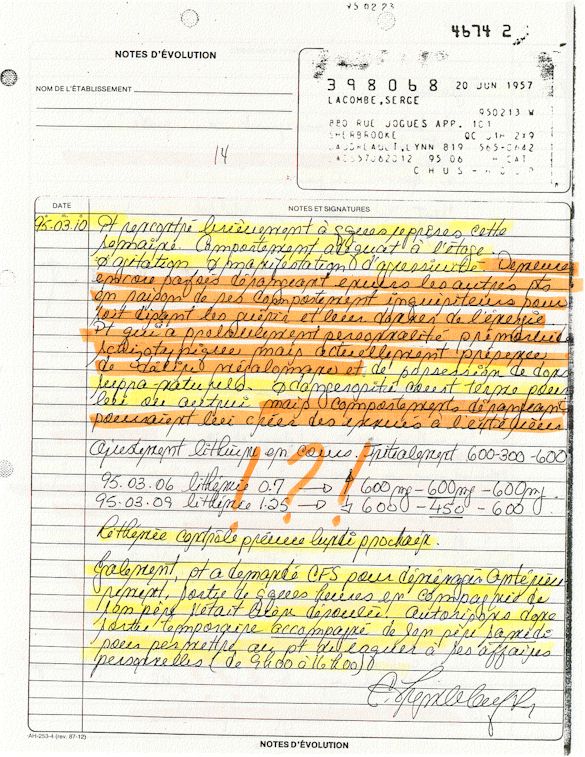 95 02 23
4674 2
NOTES D'ÉVOLUTION
NOM DE L'ÉTABLISSEMENT
14
398068 20 JUN 1957
LACOMBE, SERGE
950213 W
880 RUE JOGUES APP. 101
SHERBROOKE QC J1H 2X9
LYNN 819 565-0642
LACS57062012 95 06
CHUS-
DATE NOTES ET SIGNATURES
95.03.10 Pt rencontré brièvement à qques reprises cette
semaine. Comportement adéquat à l'étage.
Ø agitation Ø manifestation d'agressivité. Demeure
encore parfois dérangeant envers les autres pts
en raison de ses comportement inquisiteurs pour
soit disant les guérir et leur donner de l'énergie
Pt qui a probablement personnalité prémorbide
schizotypique mais actuellement présence
de délire mégalomane et de possession de dons
supra naturels. Ø dangerosité court terme pour
lui ou autrui mais comportements dérangeant
pourraient lui créer des ennuis à l'extérieur
Ajustement lithium en cours. Initialement 600-300-600
95.03.06 lithémie 0.7 → ↑ 600mg - 600mg - 600mg.
95.03.09 lithémie 1.25 → ↓ 600 - 450 - 600
!?!
Lithémie contrôle prévue lundi prochain.
Également, pt a demandé CFS pour déménager antérieu-
rement, sortie de qques heures en compagnie de
son père s'était bien déroulée. Autorisons donc
sortie temporaire accompagné de son père samedi
pour permettre au pt de vaquer à ses affaires
personnelles (de 9h00 à 16h00)
AH-253-4 (rev. 87-12)
NOTES D'ÉVOLUTION